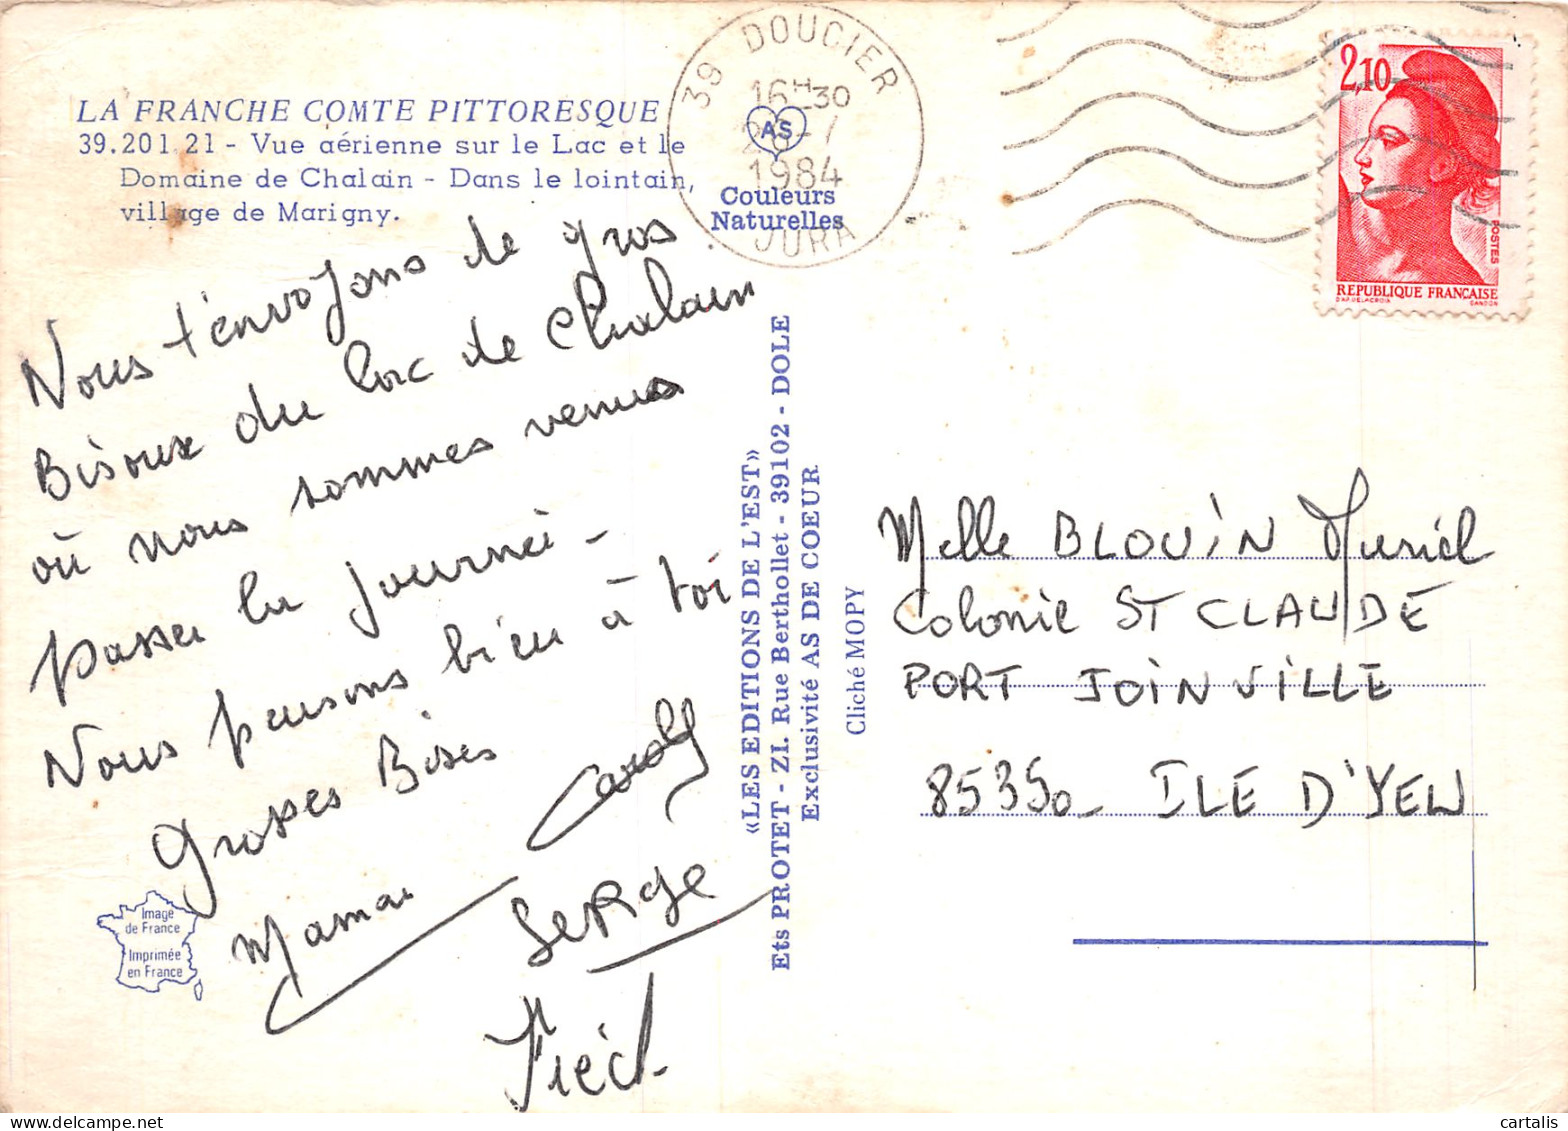 LA FRANCHE COMTE PITTORESQUE
39.201 21 - Vue aérienne sur le Lac et le
Domaine de Chalain - Dans le lointain,
village de Marigny.
39 DOUCIER
16H30
1984
JURA
AS
Couleurs
Naturelles
2,10
POSTES
REPUBLIQUE FRANÇAISE
D'AP. DELACROIX
GANDON
Nous t'envoyons de gros
Bisoux du lac de Chalain
où nous sommes venus
passer la journéi -
Nous pensons bien à toi
Grosses Bises
Maman
Serge
«LES EDITIONS DE L'EST»
Ets PROTET - ZI. Rue Berthollet - 39102 - DOLE
Exclusivité AS DE COEUR
Cliché MOPY
Melle BLOUIN Muriel
Colonie ST CLAUDE
PORT JOINVILLE
85350 - ILE D'YEU
Image
de France
Imprimée
en France
cartalis